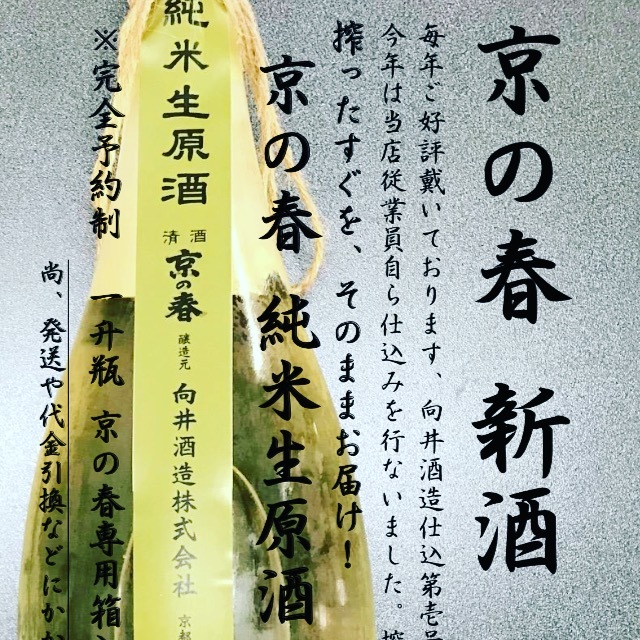 京の春 新酒
毎年ご好評戴いております、向井酒造仕込第壱号
今年は当店従業員自ら仕込みを行ないました。搾
搾ったすぐを、そのままお届け！
京の春 純米生原酒
純米生原酒
清酒
京の春
醸造元
向井酒造株式会社
京都
※完全予約制 一升瓶 京の春専用箱
尚、発送や代金引換などにかか